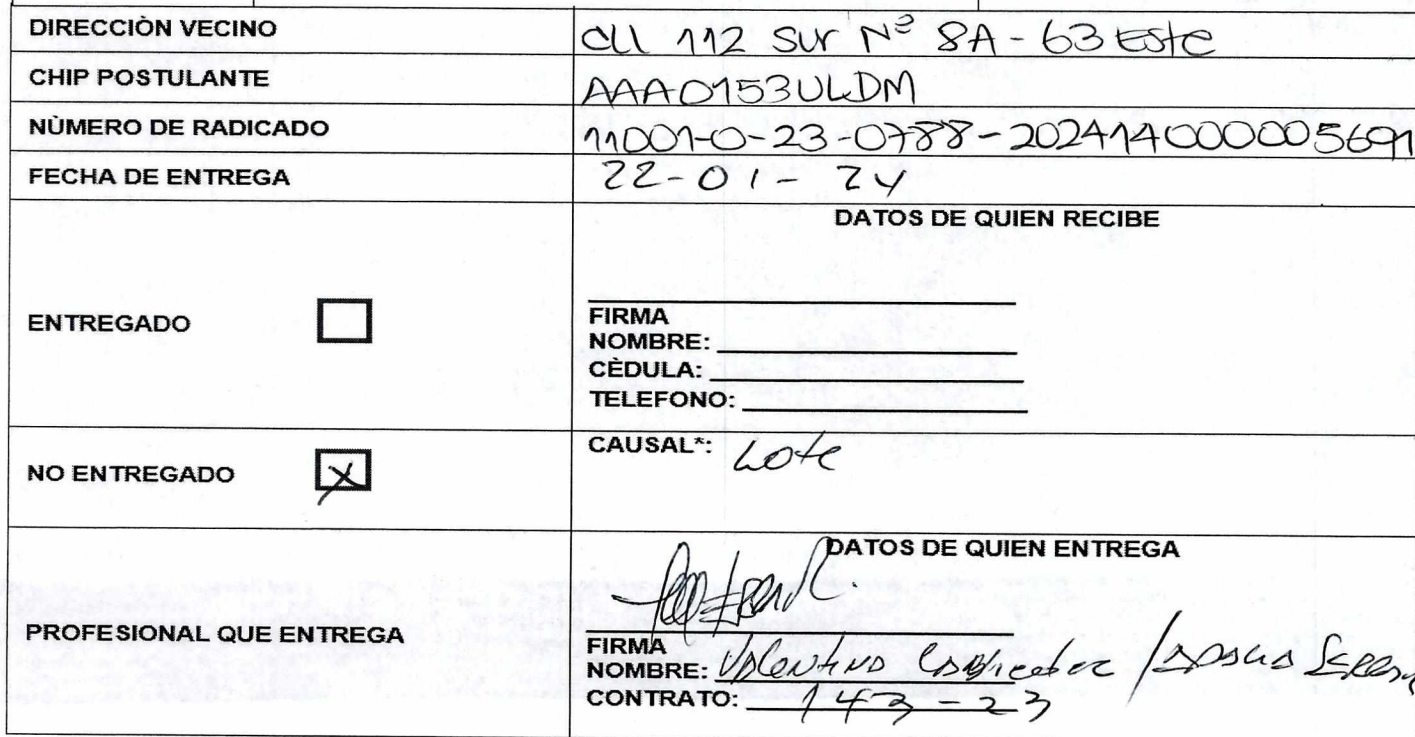 DIRECCIÒN VECINO CLL 112 SUR Nº 8A - 63 Este
CHIP POSTULANTE AAA0153ULDM
NÙMERO DE RADICADO 11001-0-23-0788-202414000005691
FECHA DE ENTREGA 22-01-24
DATOS DE QUIEN RECIBE
ENTREGADO
FIRMA
NOMBRE:
CÈDULA:
TELEFONO:
NO ENTREGADO X
CAUSAL*: Lote
DATOS DE QUIEN ENTREGA
PROFESIONAL QUE ENTREGA
FIRMA
NOMBRE: Valentina /
CONTRATO: 143-23